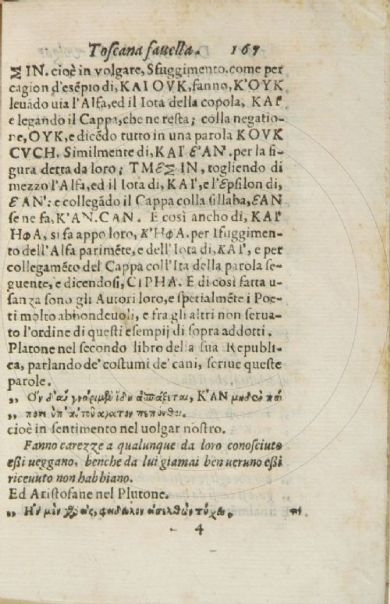 Toscana favella. 167
ΣIN. cioè in volgare, Sfuggimento. come per
cagion d'esẽpio di, KAI OYK. fanno, K'OYK
levãdo via l'Alfa, ed il Iota della copola, KAI'
e legando il Cappa, che ne resta; colla negatio-
re, OYK. e dicẽdo tutto in una parola KOYK
CVCH. Similmente di, KAI' E'AN. per la fi-
gura detta da loro; TMEΣIN, togliendo di
mezzo l'Alfa, ed il Iota di, KAI', e l'Epsilon di,
EAN': e collegãdo il Cappa colla sillaba, EAN
se ne fa, K'AN. CAN. E così ancho di, KAI'
HΦA. si fa appo loro, K'HΦA. per lsfuggimen-
to dell'Alfa parimẽte, e dell'Iota di, KAI', e per
collegamẽto del Cappa coll'Ita della parola se-
guente, e dicendosi, CIPHA. E di così fatta u-
sanza sono gli Autori loro, e spetialmẽte i Poe-
ti molto abbondevoli, e fra gli altri non serva-
to l'ordine di questi esempij di sopra addotti.
Platone nel secondo libro della sua Republi-
ca, parlando de' costumi de' cani, scrive queste
parole.
„ K'AN
„
cioè in sentimento nel volgar nostro.
Fanno carezze a qualunque da loro conosciuto
essi veggano, benche da lui giamai ben veruno essi
ricevuto non habbiano.
Ed Aristofane nel Plutone.
„
4